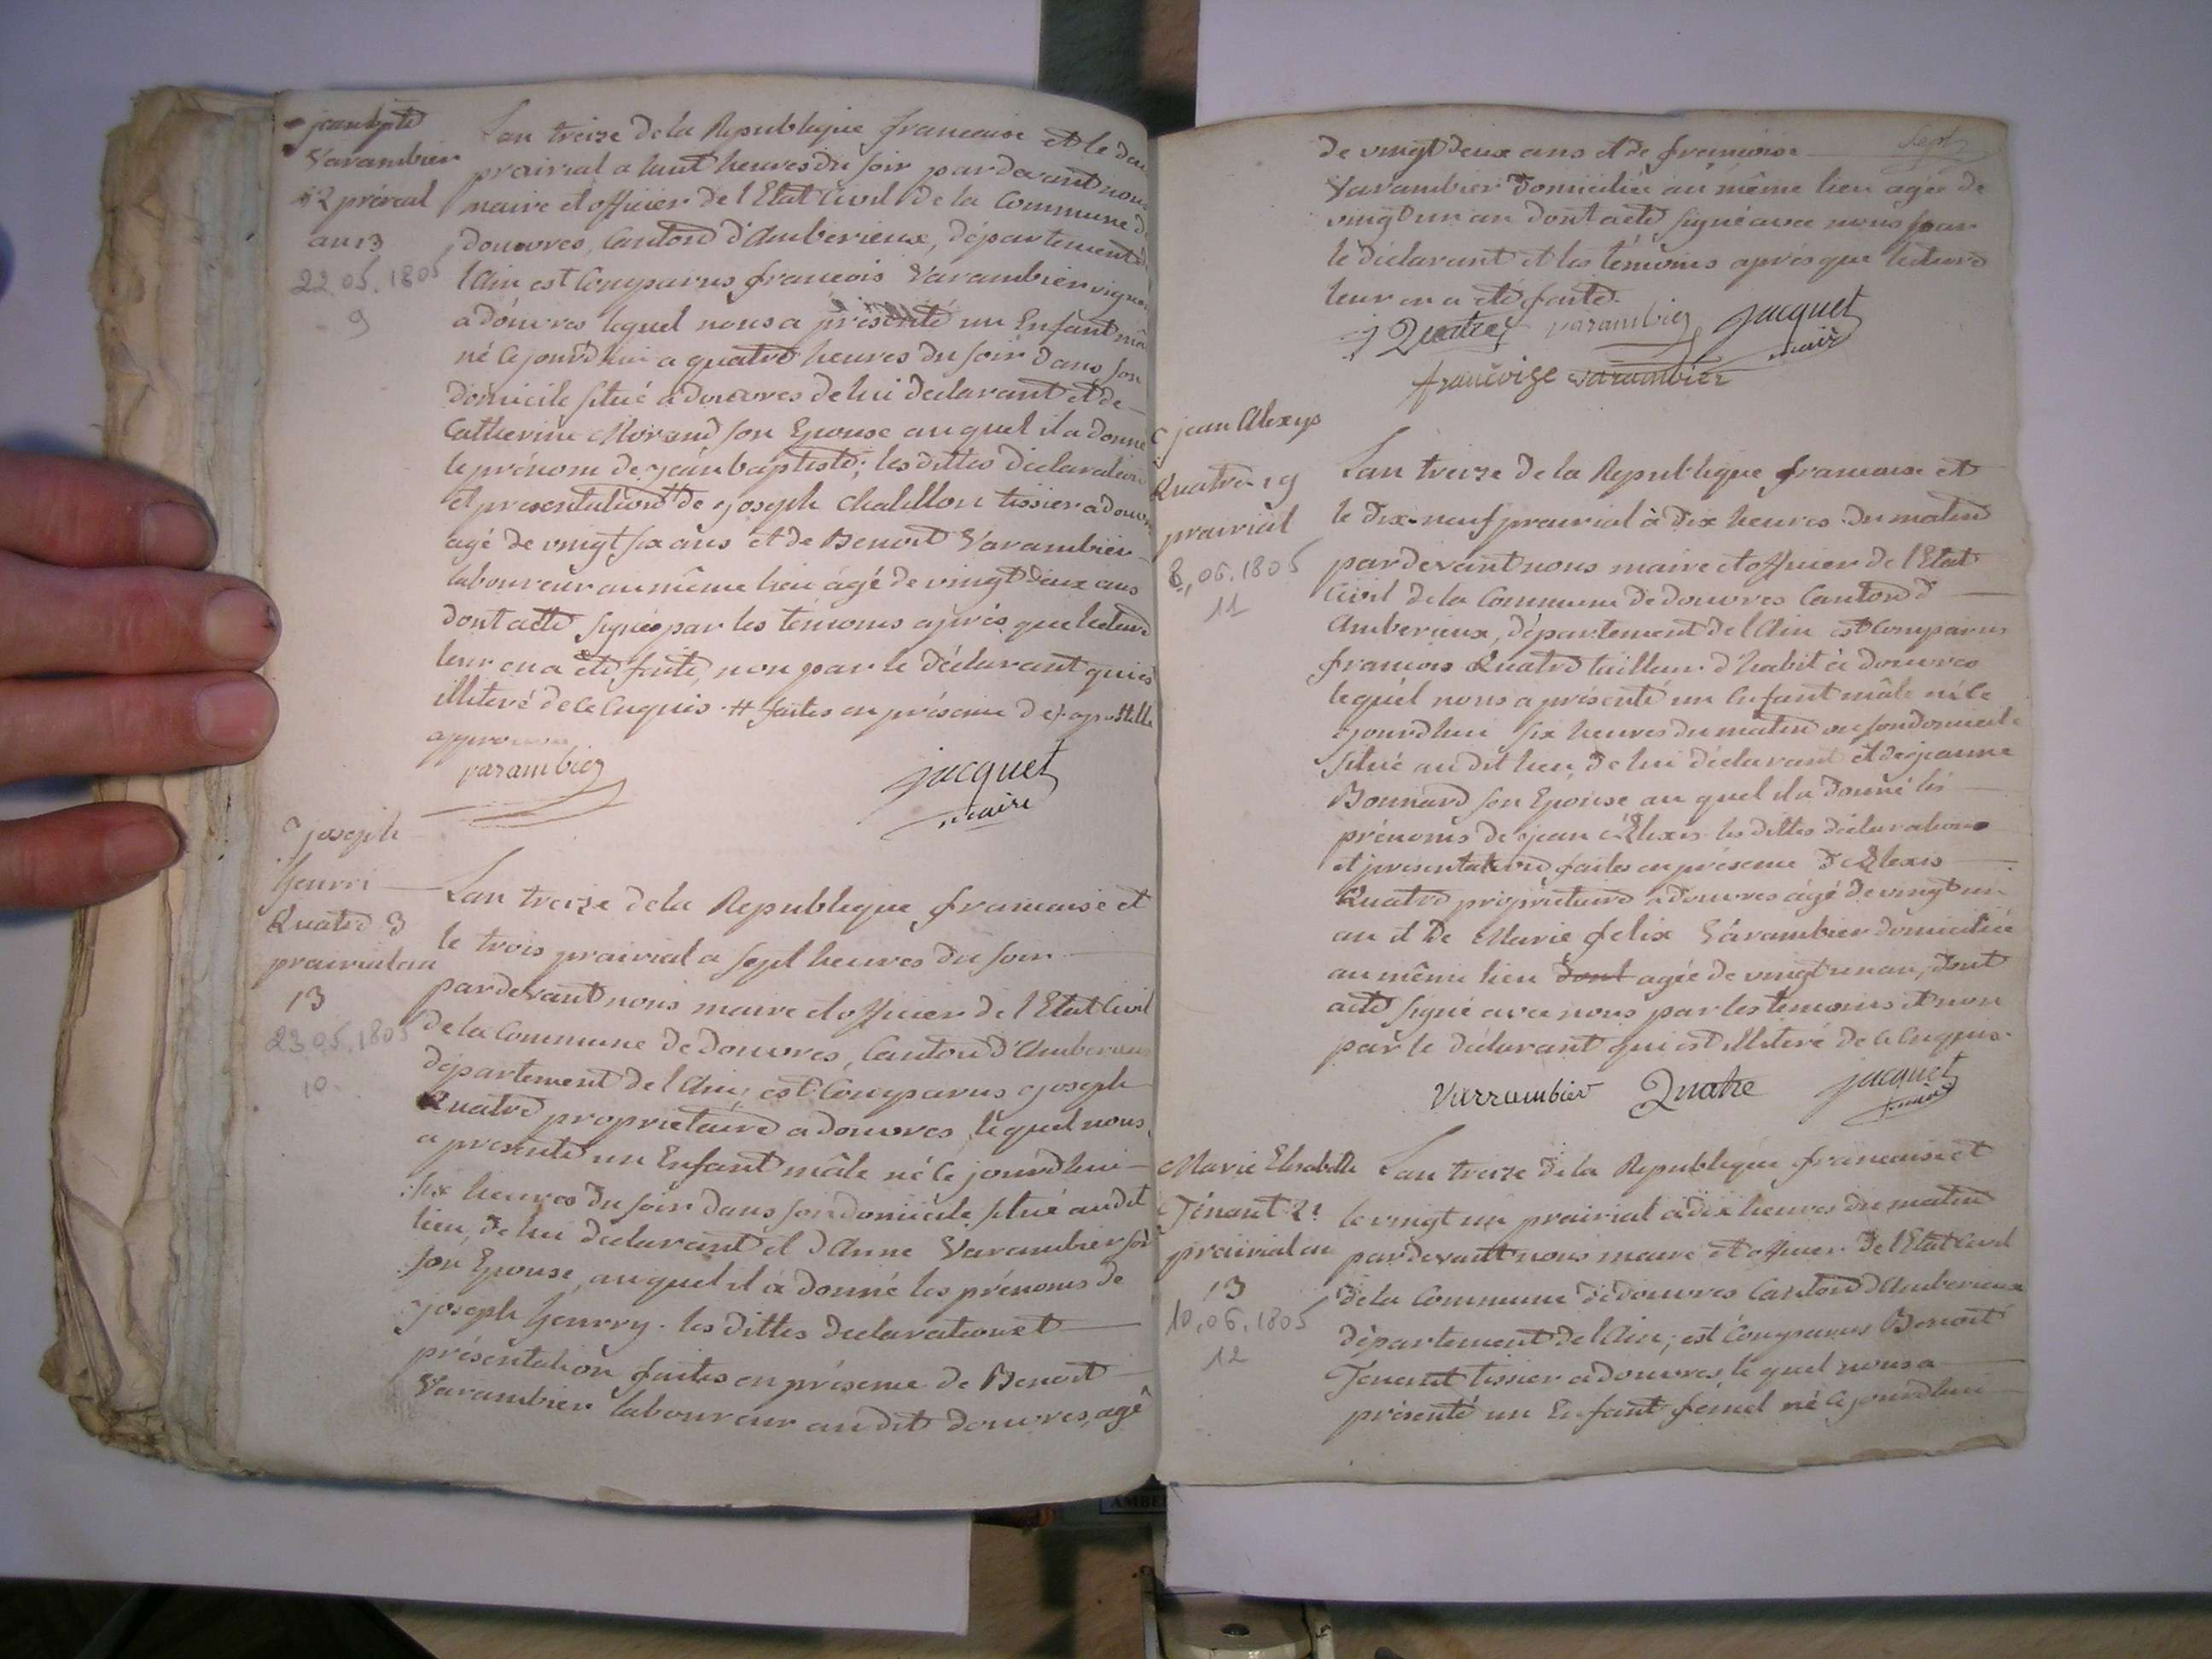 jean bpte
Varambier
2 préreal
an 13
22.05.1805
9
Lan treize de la Republique francaise et le deu
prairial a huit heures du soir pardevant nous
maire et officier de l'Etat Civil de la Commune d
douvres, Canton d'Amberieux, département d
l'Ain est Comparus francois Varambier vigne
a douvres lequel nous a présenté un Enfant mâ
né cejourdhui a quatre heures du soir dans son
domicile situé a douvres de lui declarant et de
Catherine Morand son Epouse au quel il a donné
le prénom de jean baptiste; les dittes declaration
et presentation # de joseph Chatillon tissier a douv
agé de vingt six ans et de Benoit Varambier
laboureur au même lieu âgé de vingt deux ans
dont acte signé par les témoins après que lecture
leur en a été faite, non par le déclarant qui es
illiteré de ce Enquis. # faites en présence de apostille
varambier
jacquet
maire
joseph
henrri
Quatre 3
prairial an
13
23.05.1805
10
Lan treize de la Republique francaise et
le trois prairial a sept heures du soir
pardevant nous maire et officier de l'Etat Civil
de la Commune de douvres, Canton d'Amberieux
département de l'Ain, est Comparus joseph
Quatre propriétaire a douvres, lequel nous
a presenté un Enfant mâle né ce jourdhui
six heures du soir dans son domicile situé au dit
lieu, de lui déclarant et d'Anne Varambier
son Epouse, auquel il a donné les prénoms de
joseph henrry. les dittes declaration et
présentation faites en présence de Benoit
Varambier laboureur au dit douvres, agé
Sept
de vingt deux ans et de francoise
Varambier domiciliée au même lieu agée de
vingt un an dont acte signé avec nous par
le déclarant et les témoins après que lecture
leur en a été faite.
j Quatre varambier jacquet
maire
francoise varambier
jean Alexys
Quatre 19
prairial
8.06.1805
11
Lan treize de la Republique francaise et
le dix-neuf prairial à dix heures du matin
pardevant nous maire et officier de l'Etat
Civil de la Commune de douvres Canton d
Amberieux, département de l'Ain est Comparus
francois Quatre tailleur d'habit à douvres
lequel nous a présenté un Enfant mâle né ce
jourdhui six heures du matin en son domicile
situé au dit lieu, de lui déclarant et de jeanne
Bonnard son Epouse au quel il a donné les
prénoms de jean Alexis les dittes déclarations
et présentation faites en présence d'Alexis
Quatre propriétaire a douvres agé de vingt un
an et de Marie felix Varambier domiciliée
au même lieu dont agée de vingt un an, dont
acte signé avec nous par les témoins et non
par le déclarant qui est illiteré de ce Enquis.
Varrambier Quatre jacquet
maire
Marie Elisabeth
Ténant 21
prairial an
13
10.06.1805
12
Lan treize de la Republique francaise et
le vingt un prairial à dix heures du matin
pardevant nous maire et officier de l'Etat Civil
de la Commune de douvres Canton d'Amberieux
département de l'Ain, est Comparus Benoit
Tenant tissier a douvres, le quel nous a
présenté un Enfant fémel né cejourdhui
AMBE